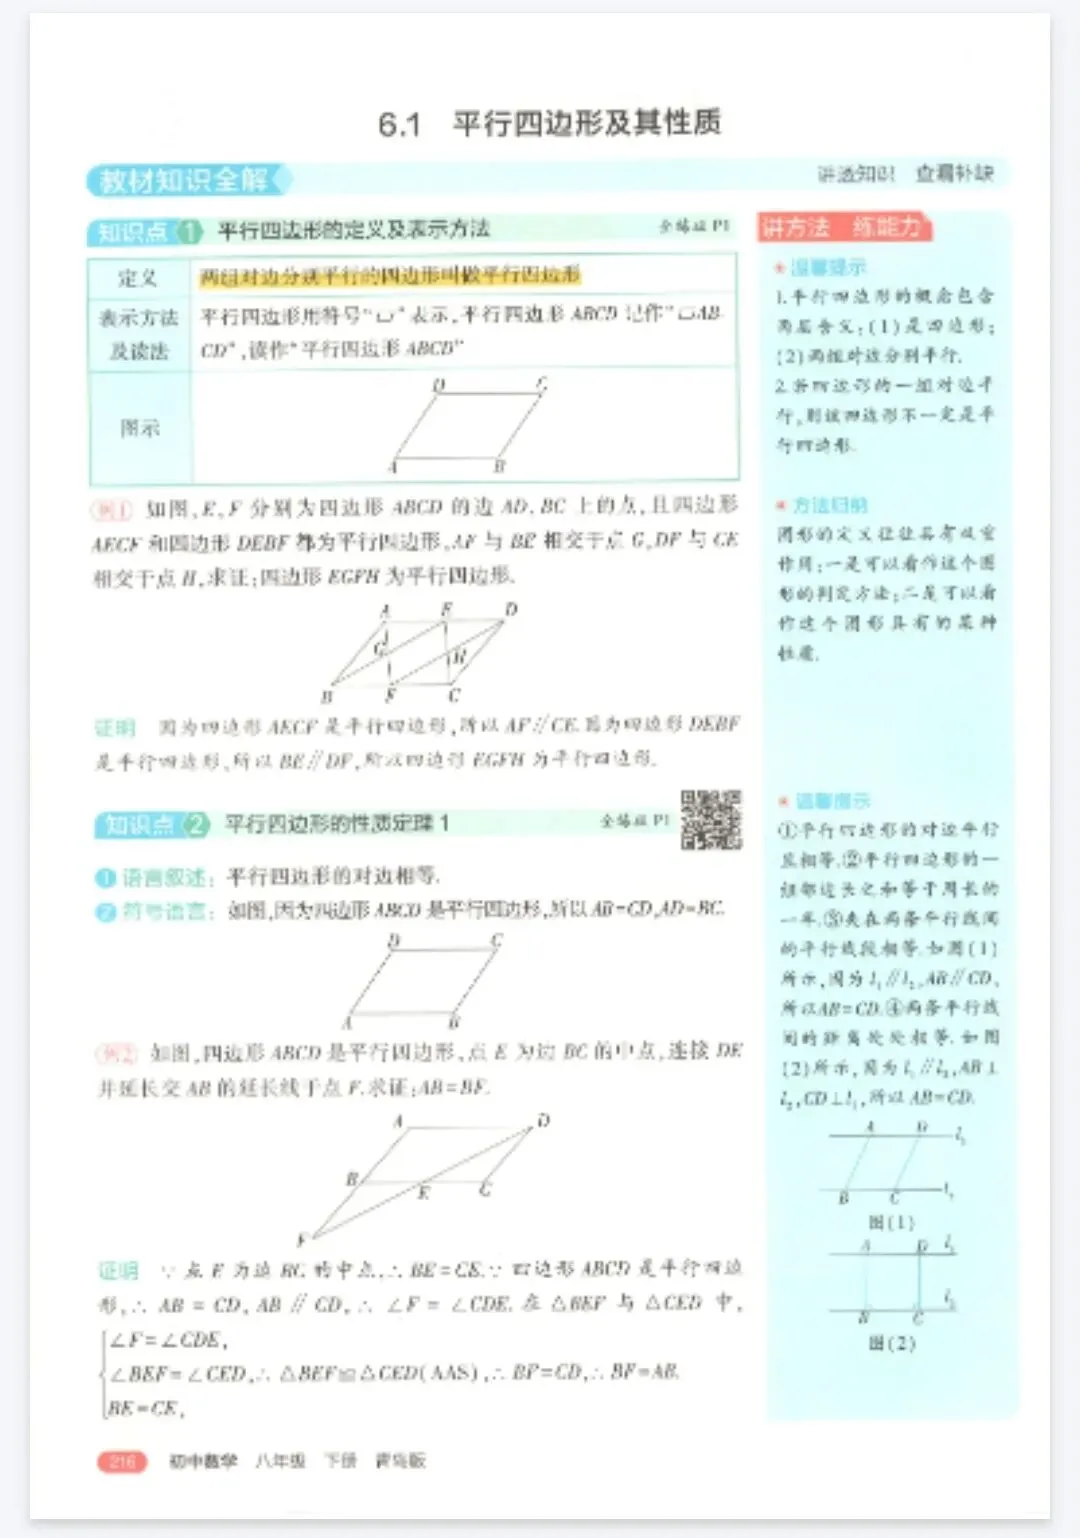 6.1 平行四边形及其性质
教材知识全解
讲透知识 查漏补缺
知识点 1 平行四边形的定义及表示方法 全练版 P1
定义 两组对边分别平行的四边形叫做平行四边形
表示方法及读法 平行四边形用符号“▱”表示,平行四边形 ABCD 记作“▱AB-
CD”,读作“平行四边形 ABCD”
图示
D C
A B
例1 如图,E,F 分别为四边形 ABCD 的边 AD,BC 上的点,且四边形
AECF 和四边形 DEBF 都为平行四边形,AF 与 BE 相交于点 G,DF 与 CE
相交于点 H,求证:四边形 EGFH 为平行四边形.
A E D
G H
B F C
证明 因为四边形 AECF 是平行四边形,所以 AF∥CE.因为四边形 DEBF
是平行四边形,所以 BE∥DF,所以四边形 EGFH 为平行四边形.
知识点 2 平行四边形的性质定理 1 全练版 P1
1 语言叙述: 平行四边形的对边相等.
2 符号语言: 如图,因为四边形 ABCD 是平行四边形,所以 AB=CD,AD=BC.
D C
A B
例2 如图,四边形 ABCD 是平行四边形,点 E 为边 BC 的中点,连接 DE
并延长交 AB 的延长线于点 F.求证:AB=BF.
A D
B E C
F
证明 ∵ 点 E 为边 BC 的中点,∴ BE=CE.∵ 四边形 ABCD 是平行四边
形,∴ AB = CD, AB ∥ CD,∴ ∠F = ∠CDE. 在 △BEF 与 △CED 中,
∠F=∠CDE,
∠BEF=∠CED,∴ △BEF≌△CED(AAS),∴ BF=CD,∴ BF=AB.
BE=CE,
讲方法 练能力
温馨提示
1.平行四边形的概念包含
两层含义:(1)是四边形;
(2)两组对边分别平行.
2.若四边形的一组对边平
行,则该四边形不一定是平
行四边形.
方法归纳
图形的定义往往具有双重
作用:一是可以看作这个图
形的判定方法;二是可以看
作这个图形具有的某种
性质.
温馨提示
①平行四边形的对边平行
且相等.②平行四边形的一
组邻边长之和等于周长的
一半.③夹在两条平行线间
的平行线段相等.如图(1)
所示,因为 l₁∥l₂,AB∥CD,
所以AB=CD.④两条平行线
间的距离处处相等.如图
(2)所示,因为 l₁∥l₂,AB⊥
l₂,CD⊥l₁,所以 AB=CD.
A D
B C
图(1)
A D
B C
图(2)
216 初中数学 八年级 下册 青岛版